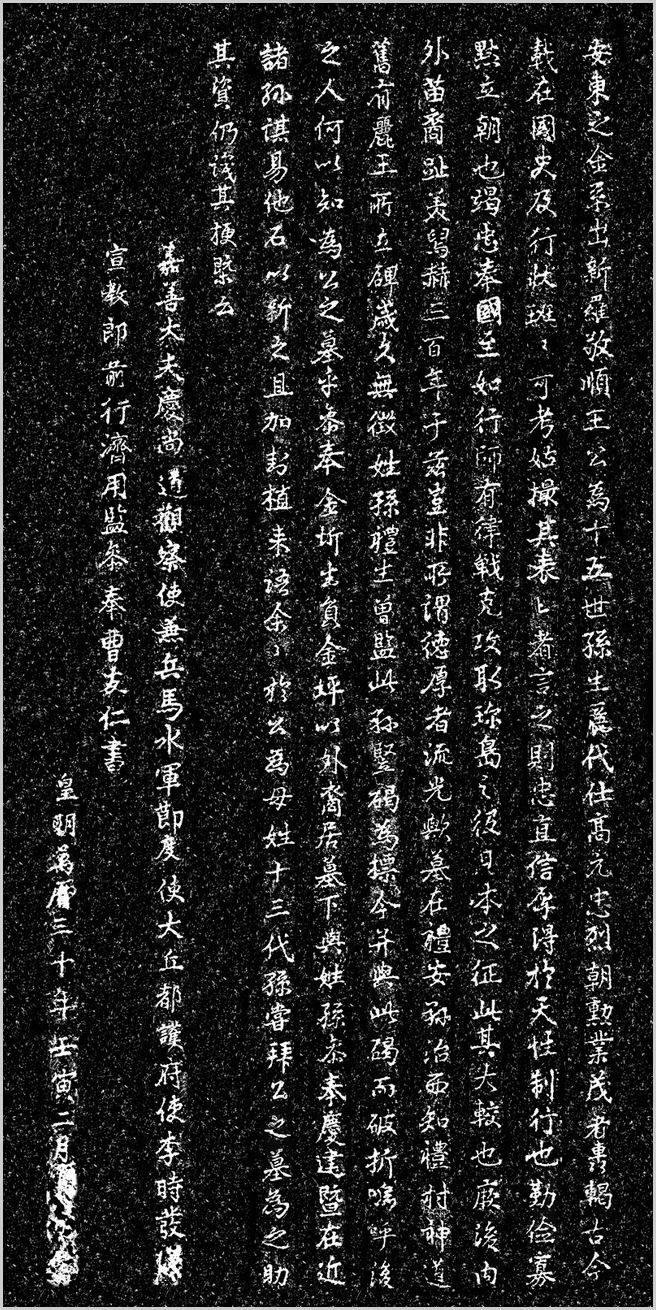 安東之金系出新羅敬順王公爲十五世孫生麗代仕高元忠烈朝勳業茂著書輵古今
載在國史及行狀班〻可考姑撮其表〻者言之則忠直信厚得於天性制行也勤儉寡
默立朝也竭忠奉國至如行師有律戰克攻取珍島之役日本之征此其大較也厥後內
外苗裔趾美舃赫三百年于茲豈非所謂德厚者流光歟墓在禮安縣治西知禮村神道
舊有麗王所立碑歲久無徵姓孫禮生曾監此縣竪碣爲標今幷與此碣而破折嗚呼後
之人何以知爲公之墓乎參奉金圻生員金坪以外裔居墓下與姓孫參奉慶建暨在近
諸孫謀易他石以新之且加封植來語余〻於公爲母姓十三代孫嘗拜公之墓爲之助
其資仍識其梗槩云
嘉善大夫慶尙道觀察使兼兵馬水軍節度使大丘都護府使李時發撰
宣敎郎前行濟用監參奉曺友仁書
皇明萬曆三十年壬寅二月